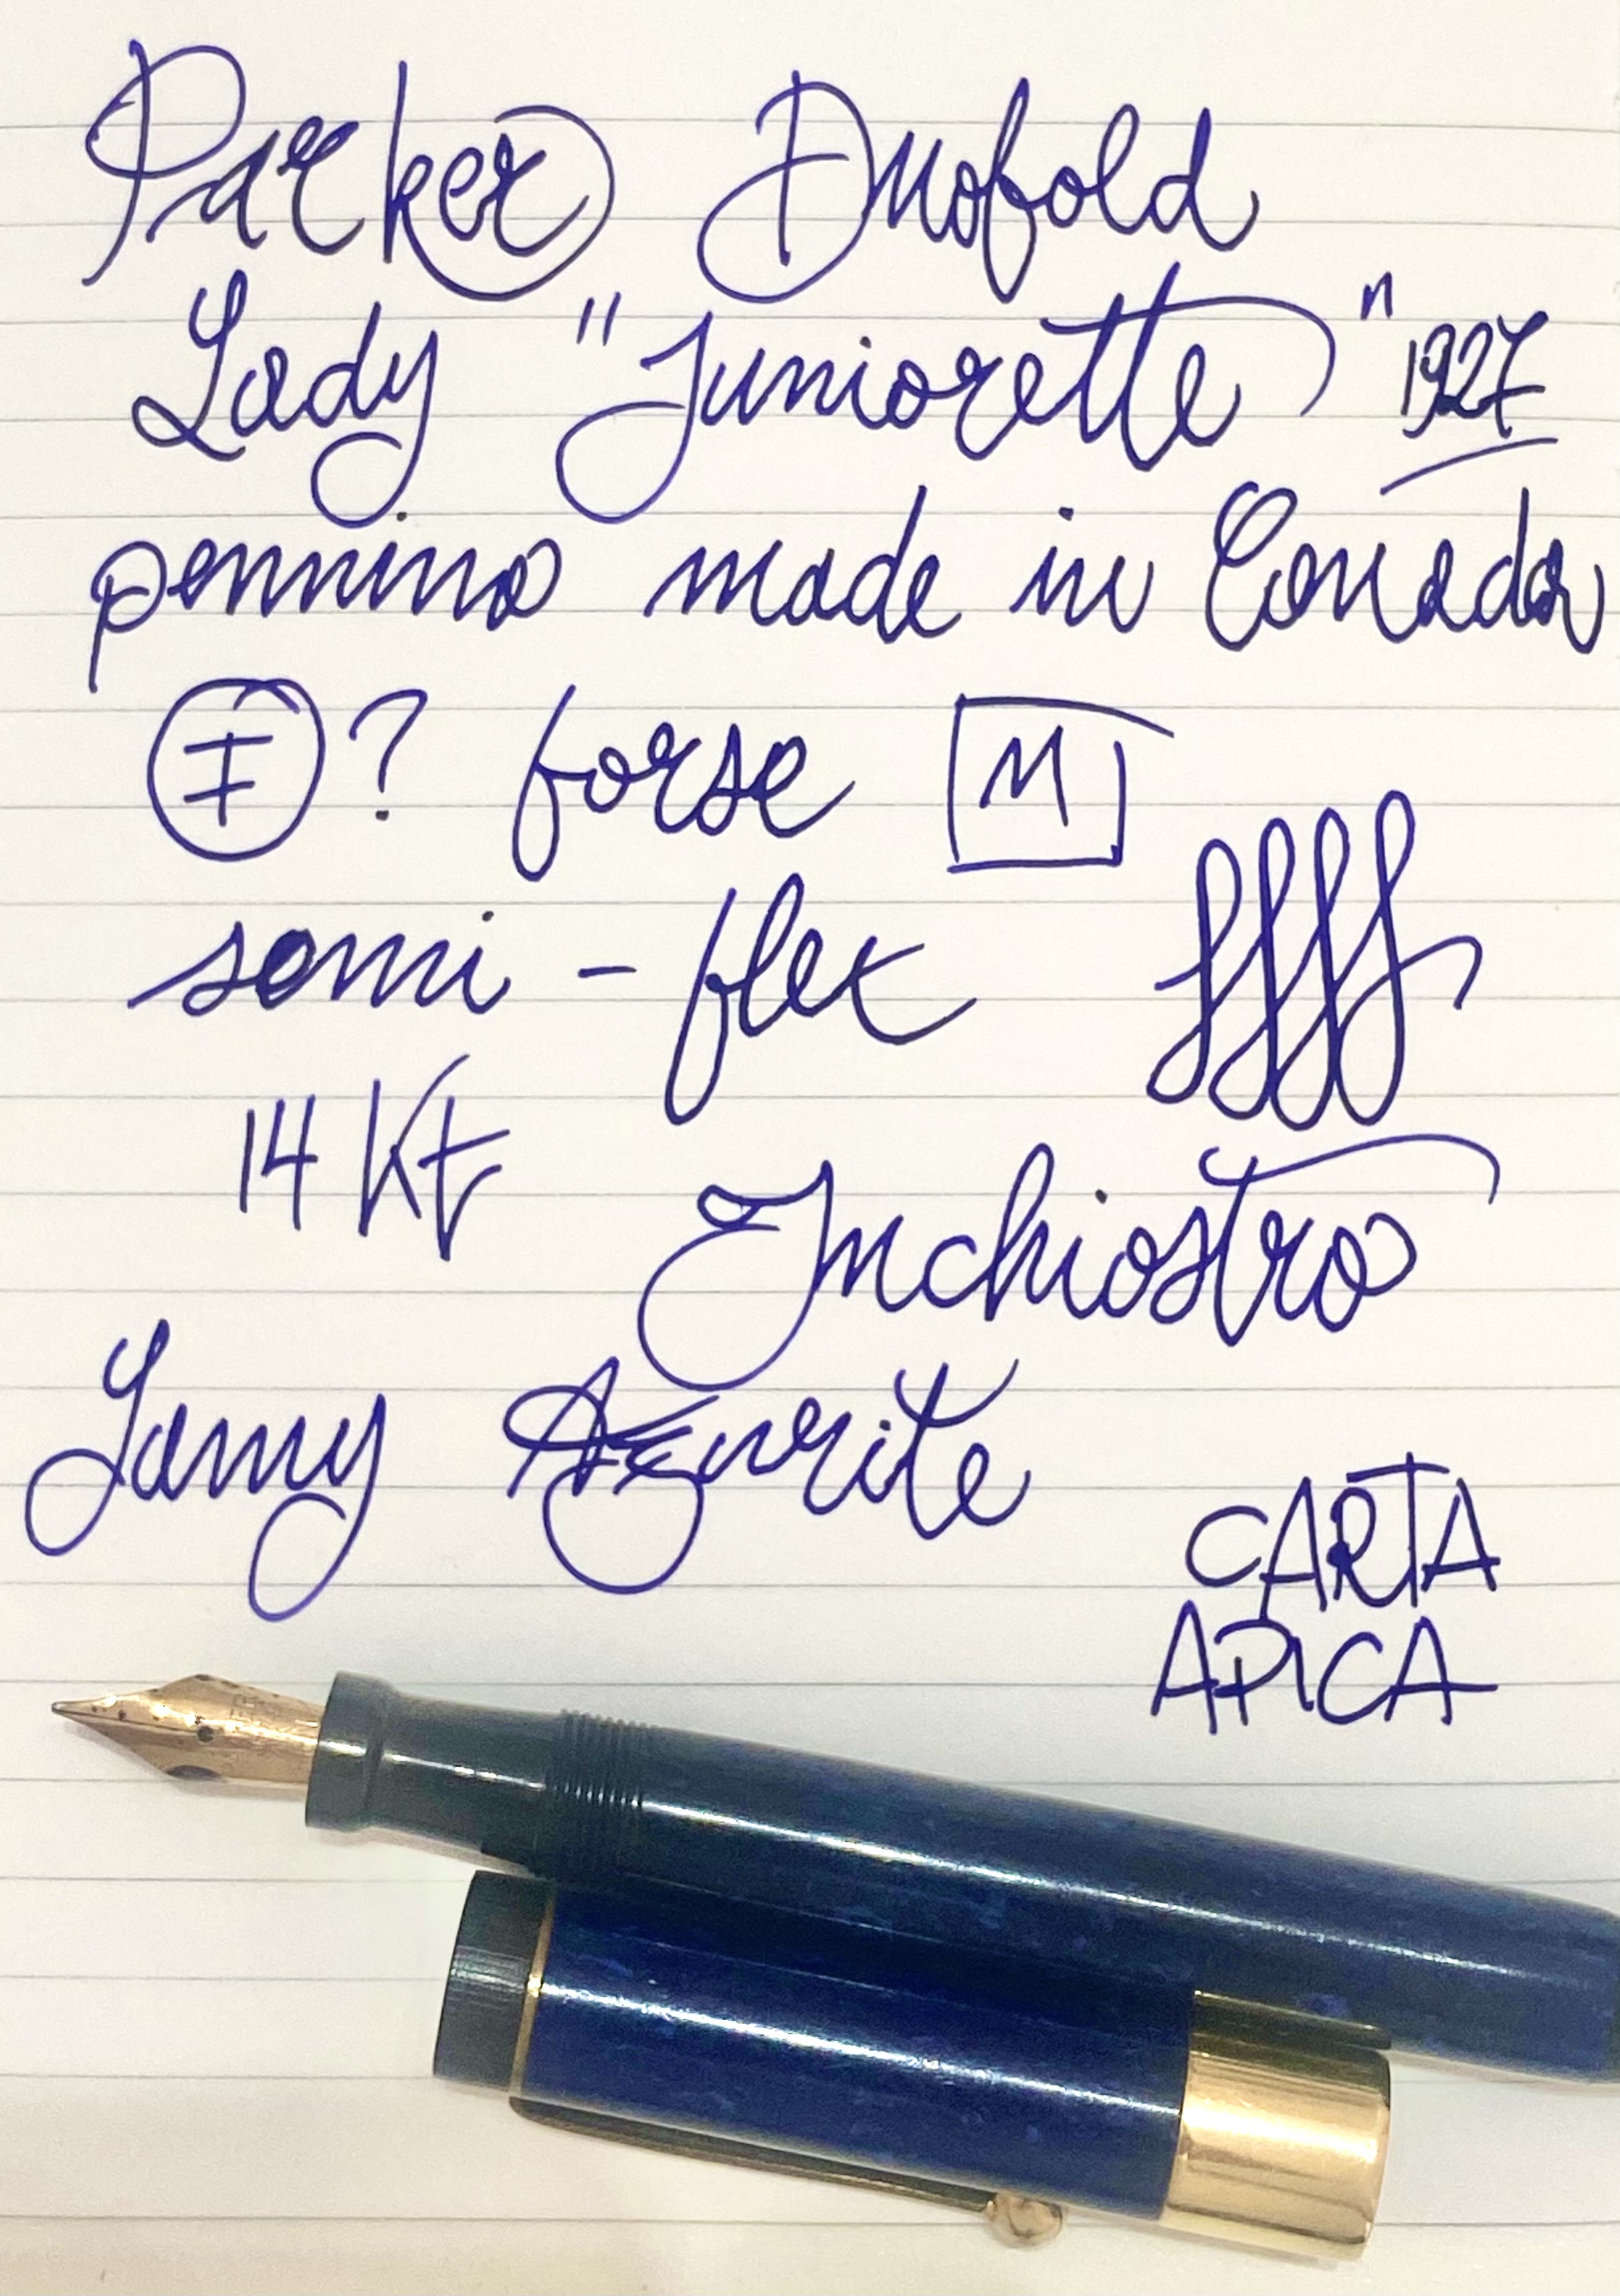 Parker Duofold
Lady "Juniorette" 1927
pennino made in Canada
F? forse M
semi-flex ffff
14 Kt
Inchiostro
Lamy Azurite
CARTA
APICA